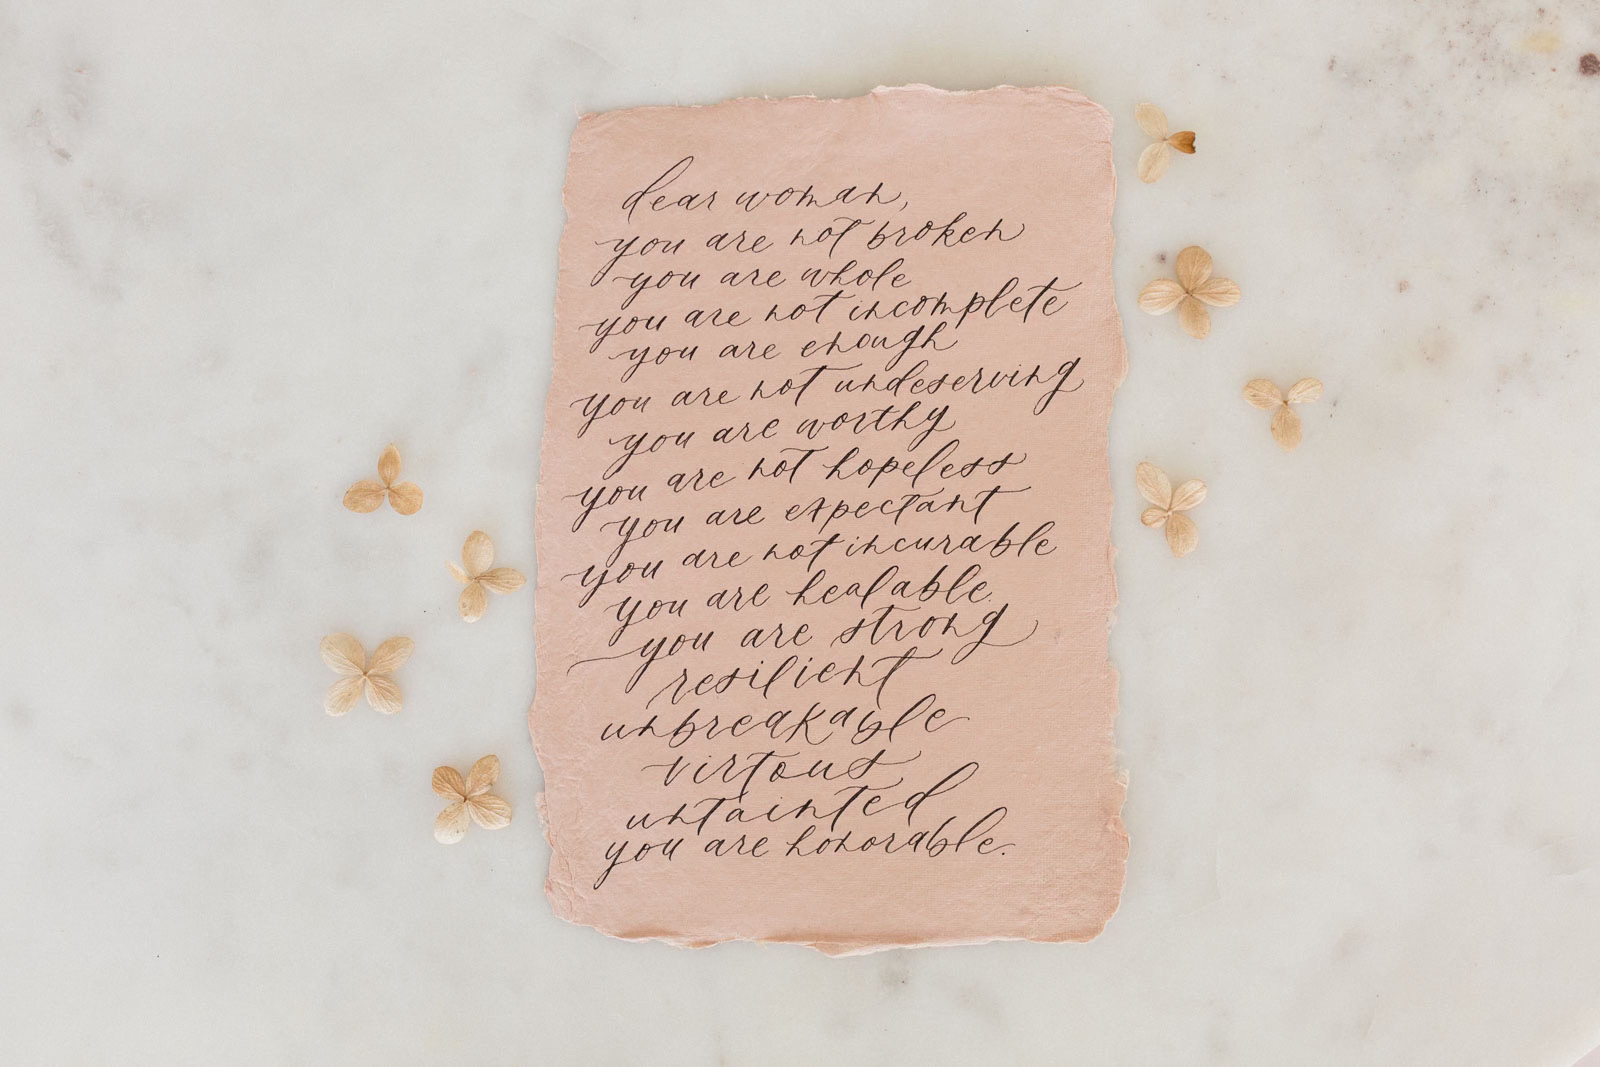 dear woman,
you are not broken
you are whole
you are not incomplete
you are enough
you are not undeserving
you are worthy
you are not hopeless
you are expectant
you are not incurable
you are healable.
you are strong
resilient
unbreakable
virtous
untainted
you are honorable.